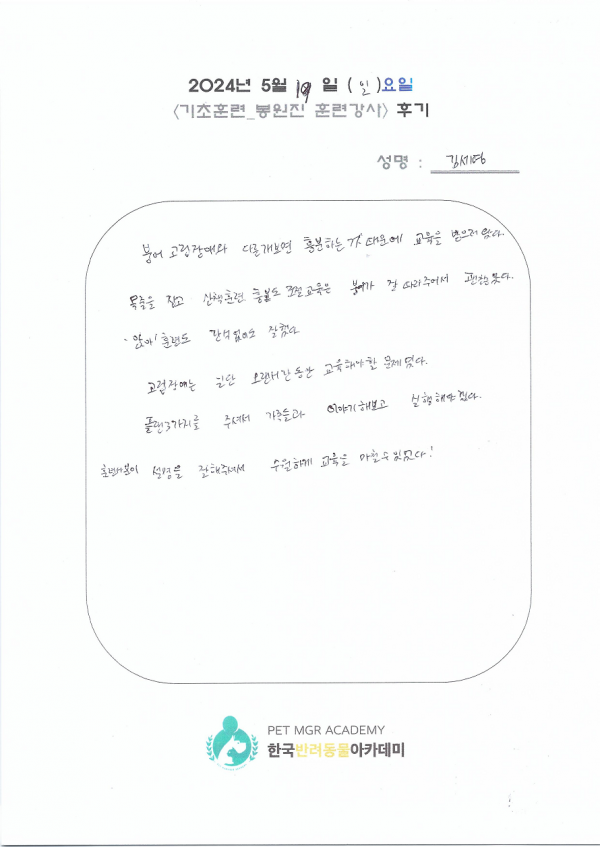 2024년 5월 19 일 (일)요일
<기초훈련_봉원진 훈련강사> 후기
성명 : 김세영
붕어 고립장애와 다른개보면 흥분하는 것 때문에 교육을 받으러 왔다.
목줄을 잡고 산책훈련 흥분도 조절교육은 붕어가 잘 따라주어서 괜찮았다.
'앉아' 훈련도 간식없이도 잘했다
고립장애는 일단 오랜시간동안 교육해야할 문제였다.
플랜3가지를 주셔서 가족들과 이야기해보고 실행해야겠다.
훈련사분이 설명을 잘해주셔서 수월하게 교육을 마칠수있었다!
PET MGR ACADEMY
한국반려동물아카데미